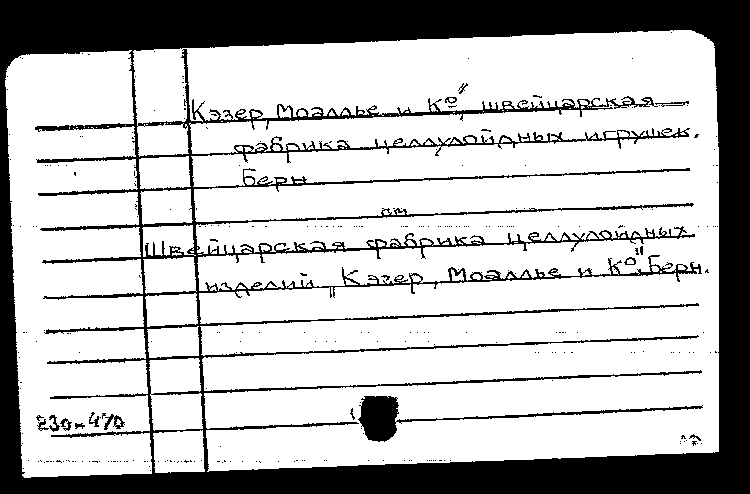 Кэзер, Моаллье и Ко", швейцарская
фабрика целлулойдных игрушек.
Берн
см
Швейцарская фабрика целлулойдных
изделий „Кэзер, Моаллье и Ко", Берн.
230-470